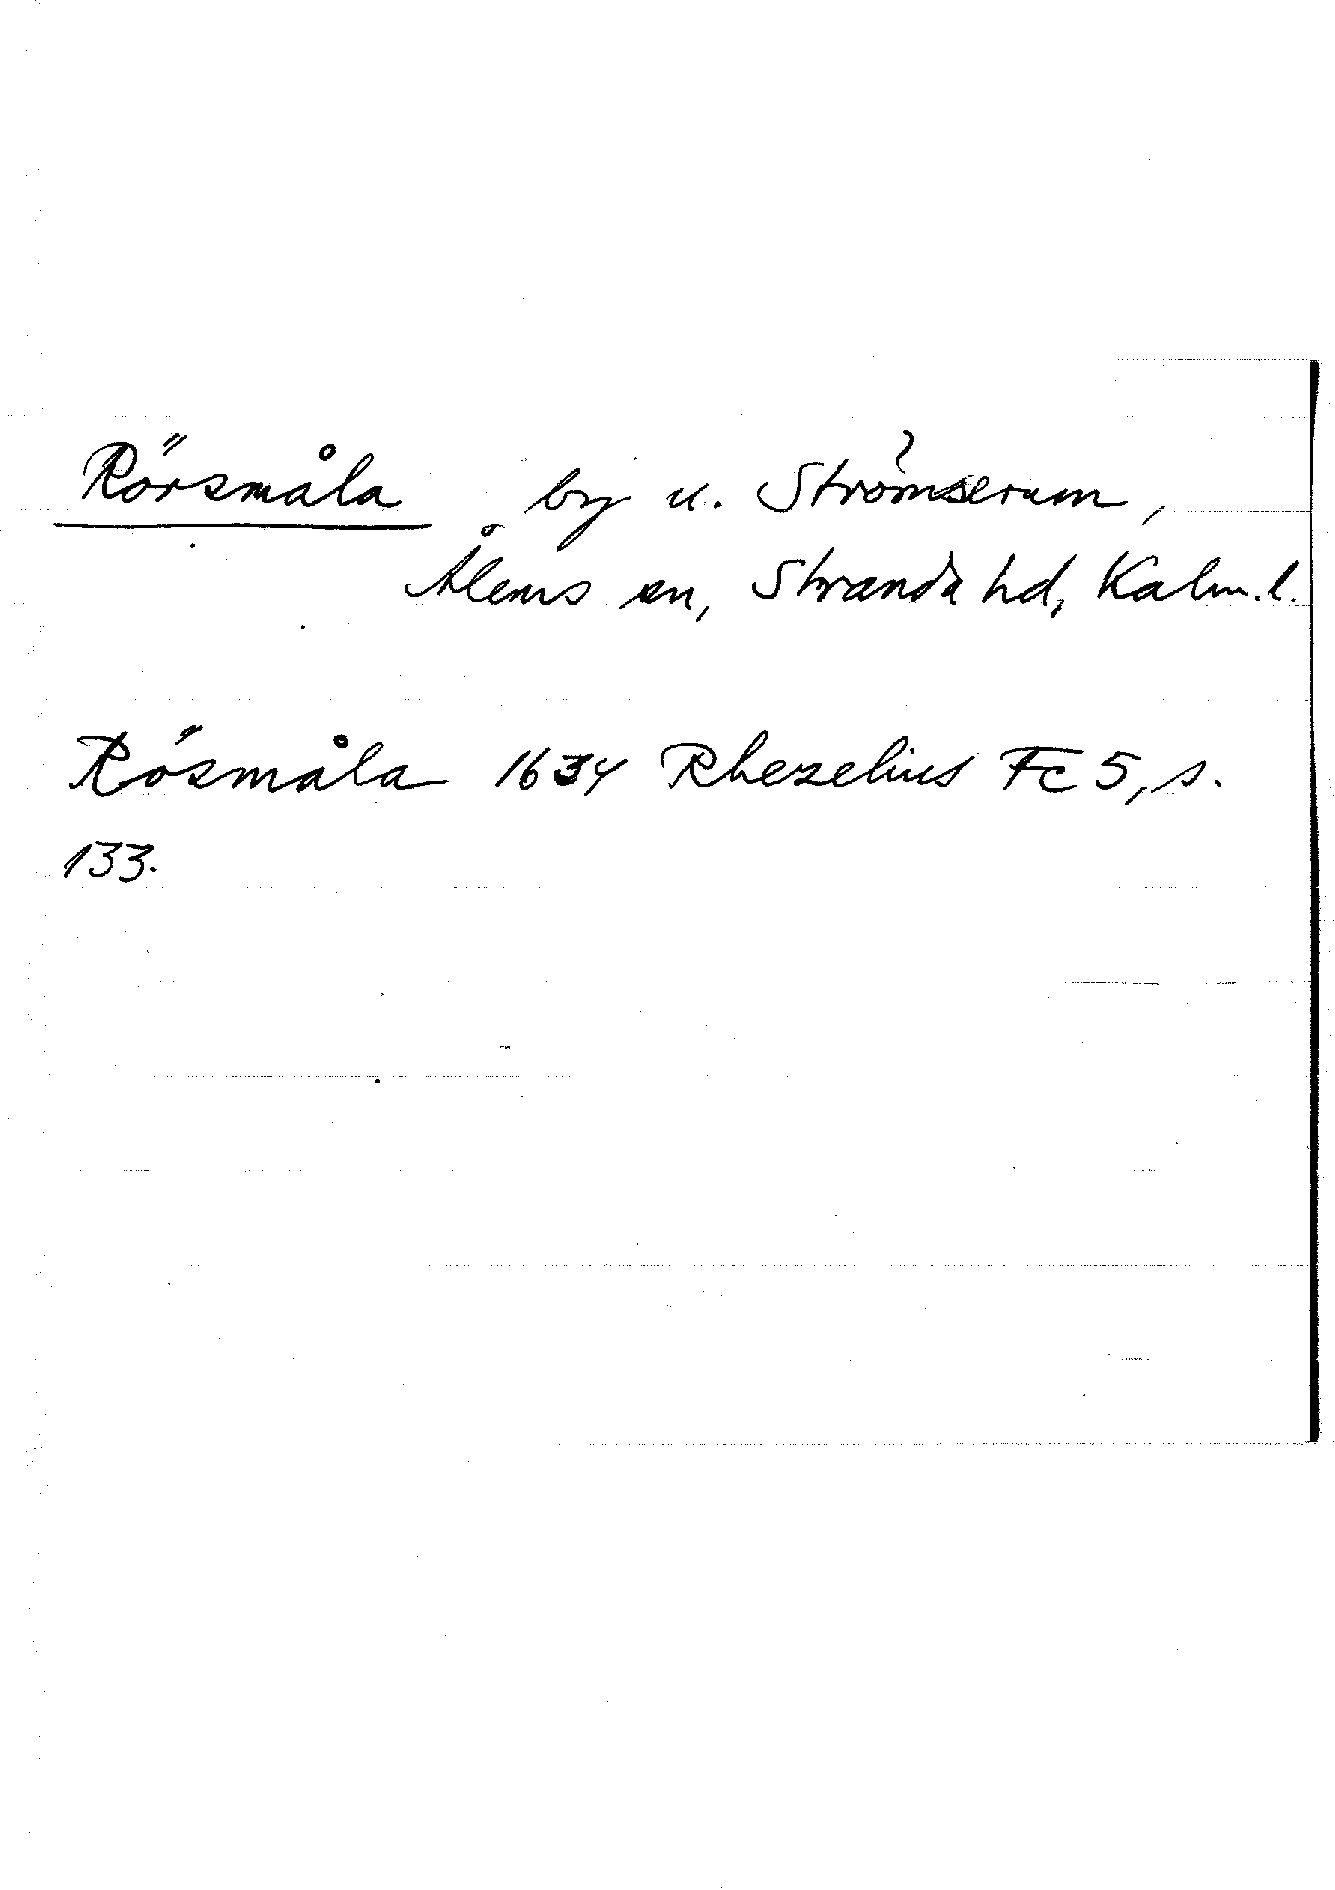 Rörsmåla by u. Strömserum,
Ålems sn, Stranda hd, Kalm. l.
Rösmåla 1634 Rhezelius Fc 5, s.
133.